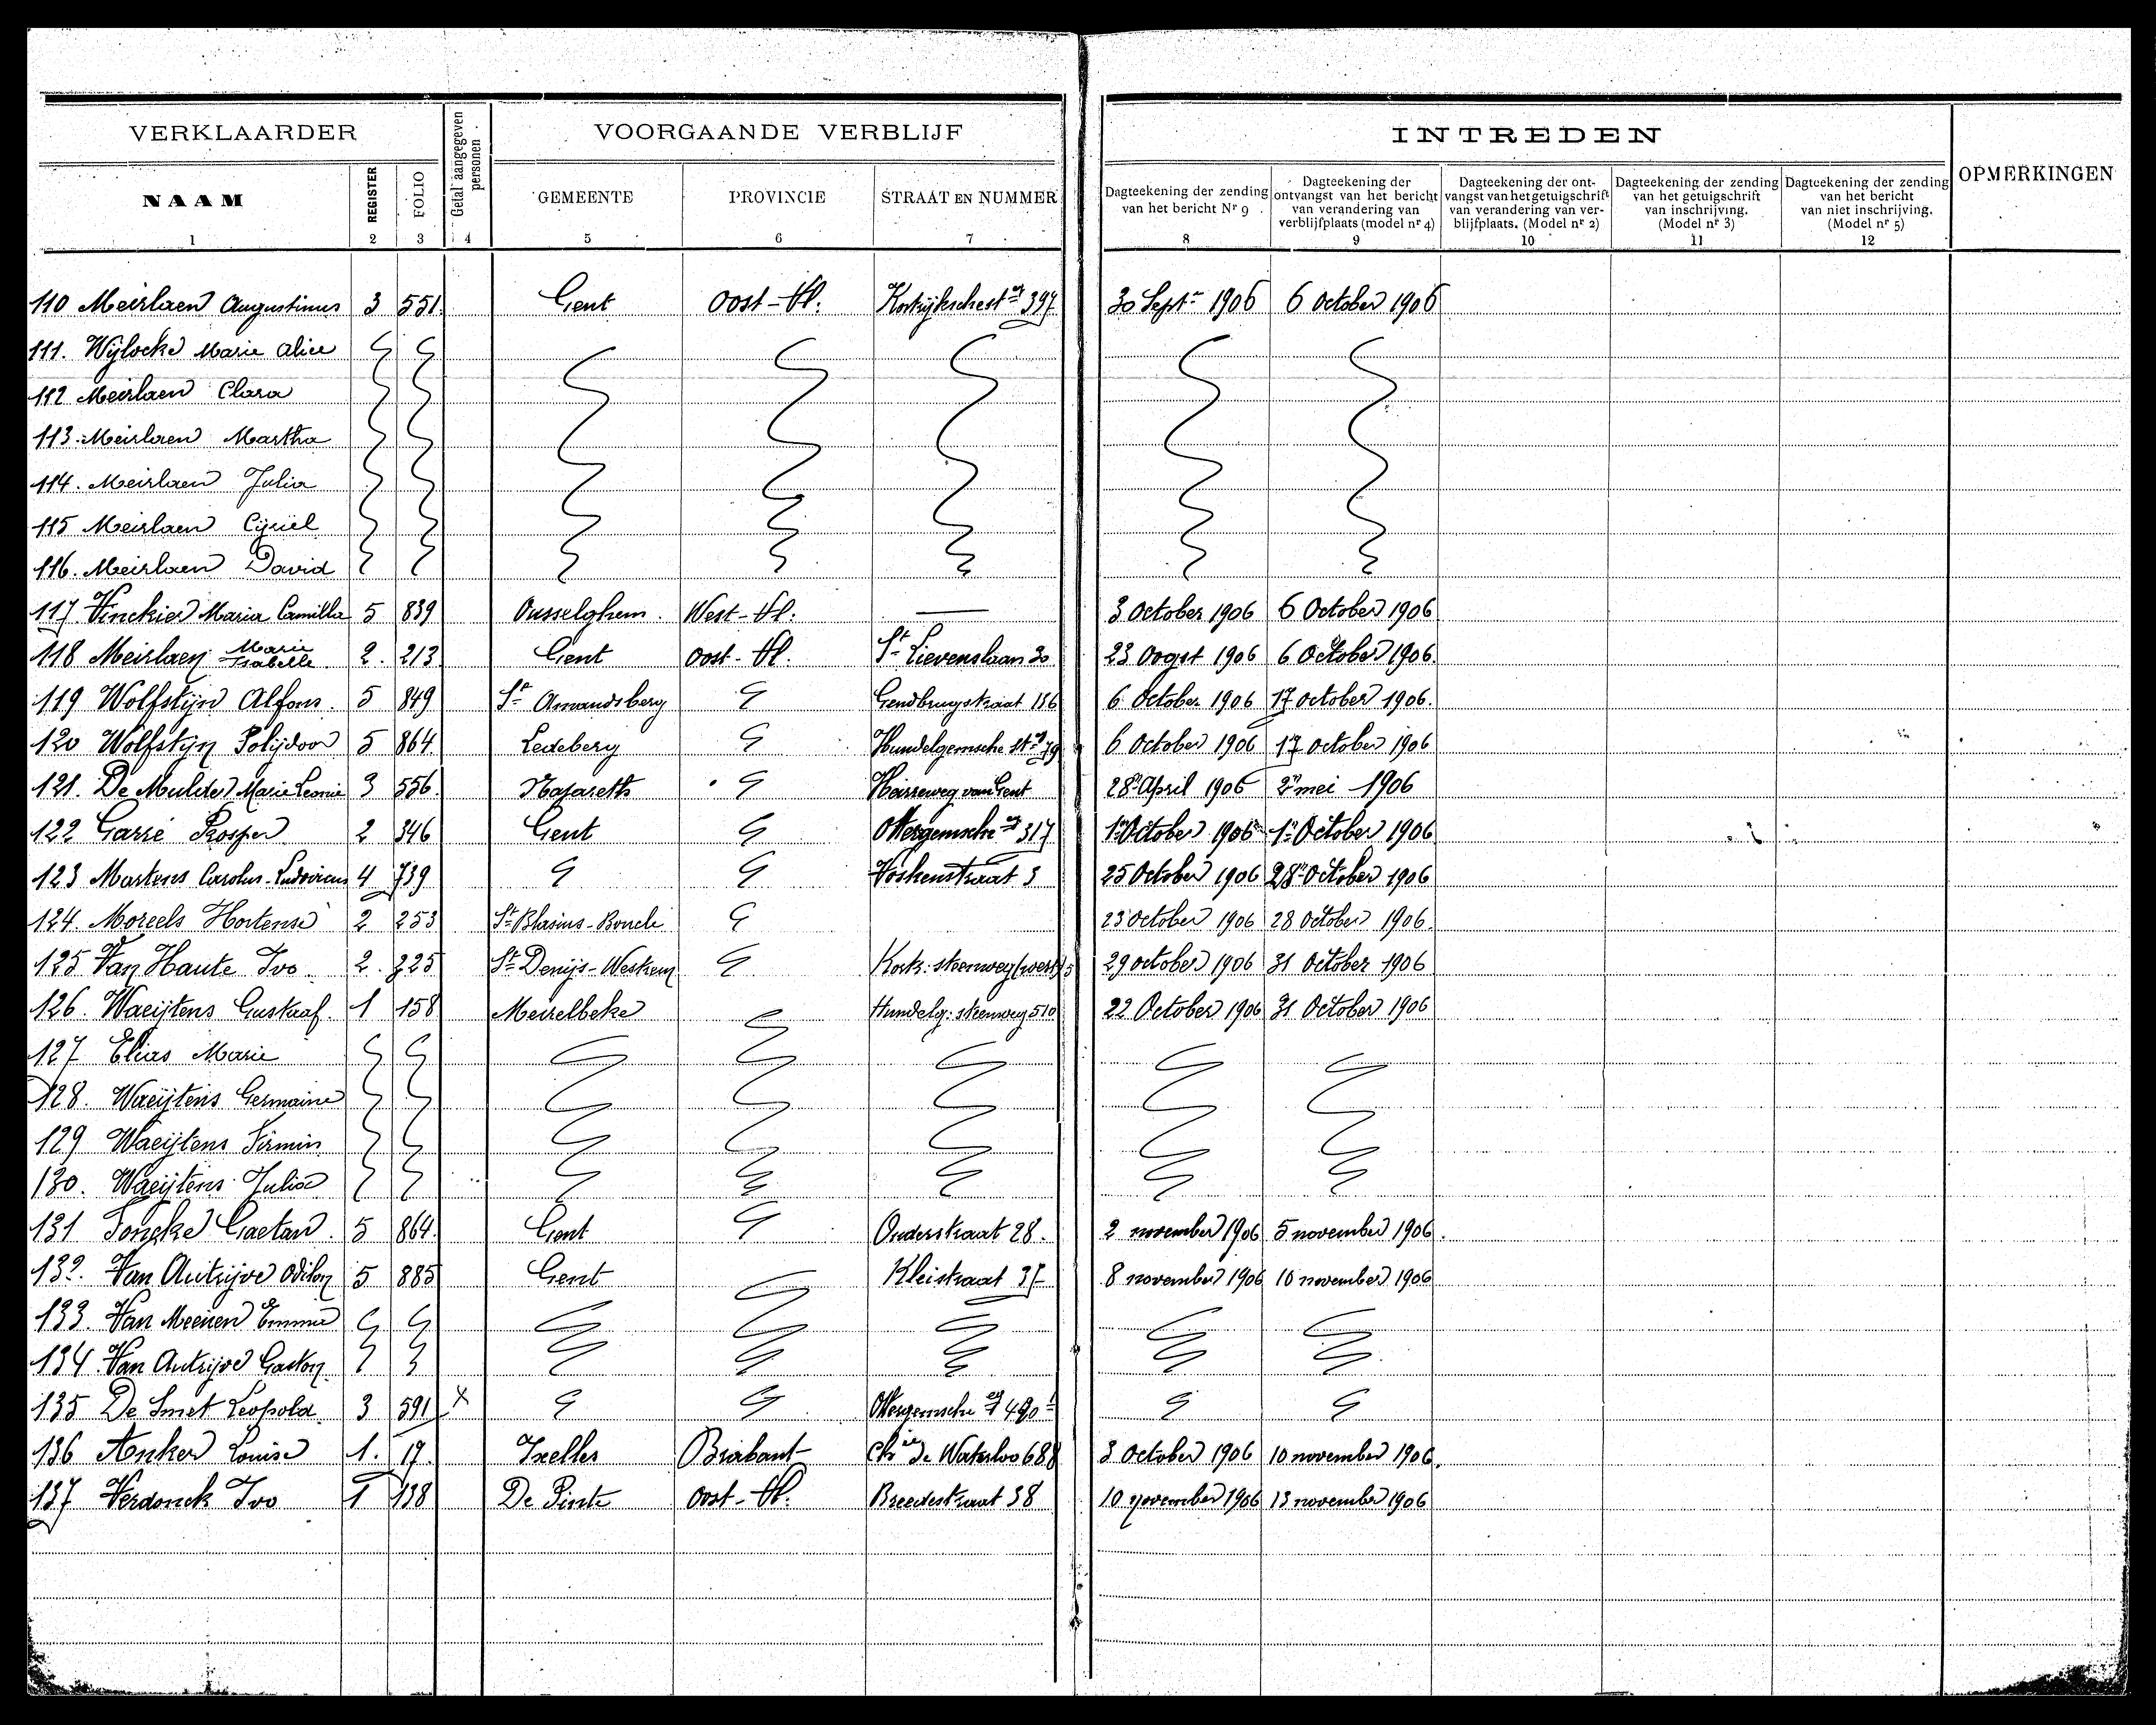 VERKLAARDER
Getal aangegeven personen
VOORGAANDE VERBLIJF
INTREDEN
OPMERKINGEN
NAAM REGISTER FOLIO GEMEENTE PROVINCIE STRAAT EN NUMMER
Dagteekening der zending van het bericht Nr 9
Dagteekening der ontvangst van het bericht van verandering van verblijfplaats (model nr 4)
Dagteekening der ont-vangst van het getuigschrift van verandering van ver-blijfplaats. (Model nr 2)
Dagteekening der zending van het getuigschrift van inschrijving. (Model nr 3)
Dagteekening der zending van het bericht van niet inschrijving. (Model nr 5)
1 2 3 4 5 6 7 8 9 10 11 12
110 Meirlaen Augustinus 3 551 Gent Oost-Vl. Kortrijkschest 397 30 Sept 1906 6 October 1906
111. Wijlocke Marie Alice
112 Meirlaen Clara
113. Meirlaen Martha
114. Meirlaen Julia
115 Meirlaen Cijriel
116. Meirlaen David
117 Vinckier Maria Camilla 5 839 Ousselghem. West-Vl. — 3 October 1906 6 October 1906
118 Meirlaen Marie Isabelle 2. 213 Gent Oost-Vl. St Lievenslaan 30 23 Oogst 1906 6 October 1906.
119 Wolfstijn Alfons. 5 849 St Amandsberg Gendbrugstraat 156 6 October 1906 17 october 1906.
120 Wolfstijn Polijdoor 5 864 Ledeberg Hundelgemsche st 79 6 October 1906 17 october 1906
121. De Mulder Marie Leonie 3 556 Nazareth Heirreweg van Gent 28n April 1906 2n mei 1906
122 Garré Prosper 2 346 Gent Ottergemsche 317 1n October 1906 1n October 1906
123 Martens Carolus-Ludovicus 4 739 Voskenstraat 3 25 October 1906 28n October 1906
124. Moreels Hortense 2 253 St Blasius-Boucle 23 october 1906 28 October 1906.
125 Van Haute Ivo. 2. 225 St Denijs-Westrem Kortr. steenweg 29 october 1906 31 October 1906
126. Waeijtens Gustaaf. 1 158 Meirelbeke Hundelg. steenweg 510 22 October 1906 31 October 1906
127 Elias Marie
128. Waeijtens Germaine
129 Waeijtens Firmin
130. Waeijtens Julia
131 Toncke Gaetan. 5 864. Gent Onderstraat 28. 2 november 1906 5 november 1906.
132. Van Autrijve Odilon 5 885 Gent Kleistraat 37 8 november 1906 10 november 1906
133. Van Meenen Emma
134 Van Autrijve Gaston
135 De Smet Leopold. 3 591 x Ottergemsche 490
136 Anker Louise 1. 17. Ixelles Brabant Chée de Waterloo 688 3 October 1906 10 november 1906.
137 Verdonck Ivo 1 138 De Pinte Oost-Vl. Breedestraat 38 10 november 1906 13 november 1906